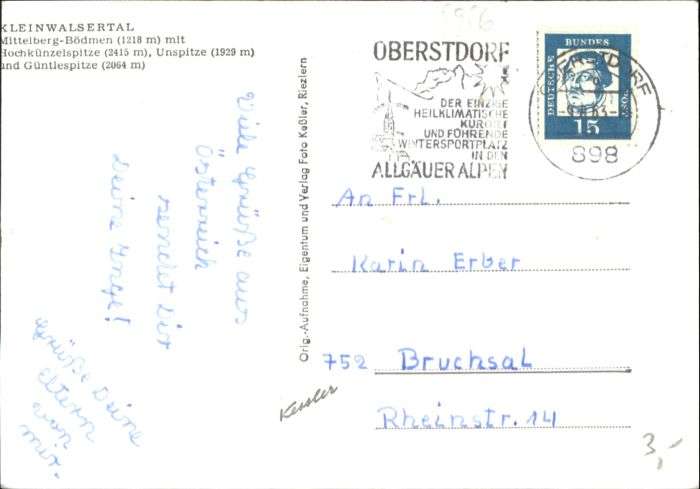 KLEINWALSERTAL
Mittelberg-Bödmen (1218 m) mit
Hochkünzelspitze (2415 m), Unspitze (1929 m)
und Güntlespitze (2064 m)
Viele Grüße aus
Österreich
sendet Dir
Deine Inge!
Grüße Deine
Eltern
von
mir.
Orig.-Aufnahme, Eigentum und Verlag Foto Keßler, Riezlern
Kessler
OBERSTDORF
DER EINZIGE
HEILKLIMATISCHE
KURORT
UND FÜHRENDE
WINTERSPORTPLATZ
IN DEN
ALLGÄUER ALPEN
DEUTSCHE BUNDESPOST
15
OBERSTDORF
898
An Frl.
Karin Erber
752 Bruchsal
Rheinstr. 14
3,-